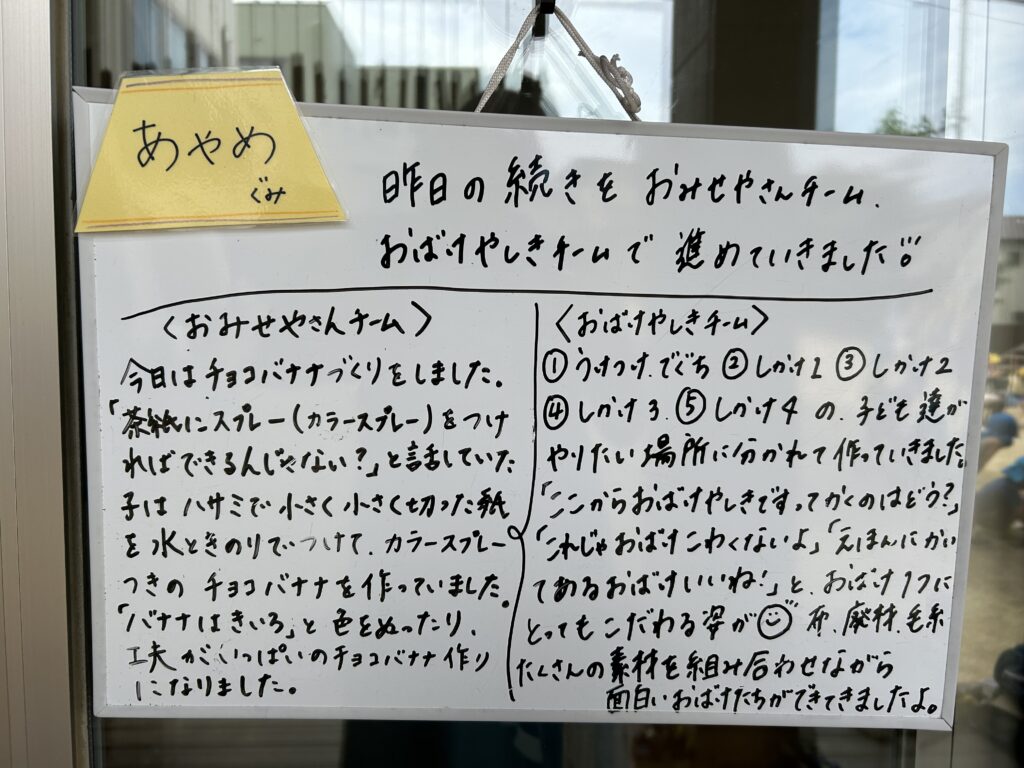 あやめ
ぐみ
昨日の続きを おみせやさんチーム、
おばけやしきチームで 進めていきました!!
〈おみせやさんチーム〉
今日はチョコバナナづくりをしました。
「茶紙にスプレー(カラースプレー)をつけ
ればできるんじゃない?」と話していた
子は ハサミで 小さく 小さく切った紙
を 水ときのりでつけて、カラースプレー
つきの チョコバナナを 作っていました。
「バナナは きいろ」と 色をぬったり、
工夫がいっぱいのチョコバナナ作り
になりました。
〈おばけやしきチーム〉
① うけつけ、でぐち ② しかけ1 ③ しかけ2
④ しかけ3 ⑤ しかけ4 の、子ども達が
やりたい場所に分かれて作っていきました。
「ここからおばけやしきですってかくのはどう?」
「これじゃおばけこわくないよ」「えほんにかい
てあるおばけいいね!」と、おばけ1つに
とってもこだわる姿が 布、廃材、毛糸
たくさんの素材を組み合わせながら
面白いおばけたちができてきましたよ。